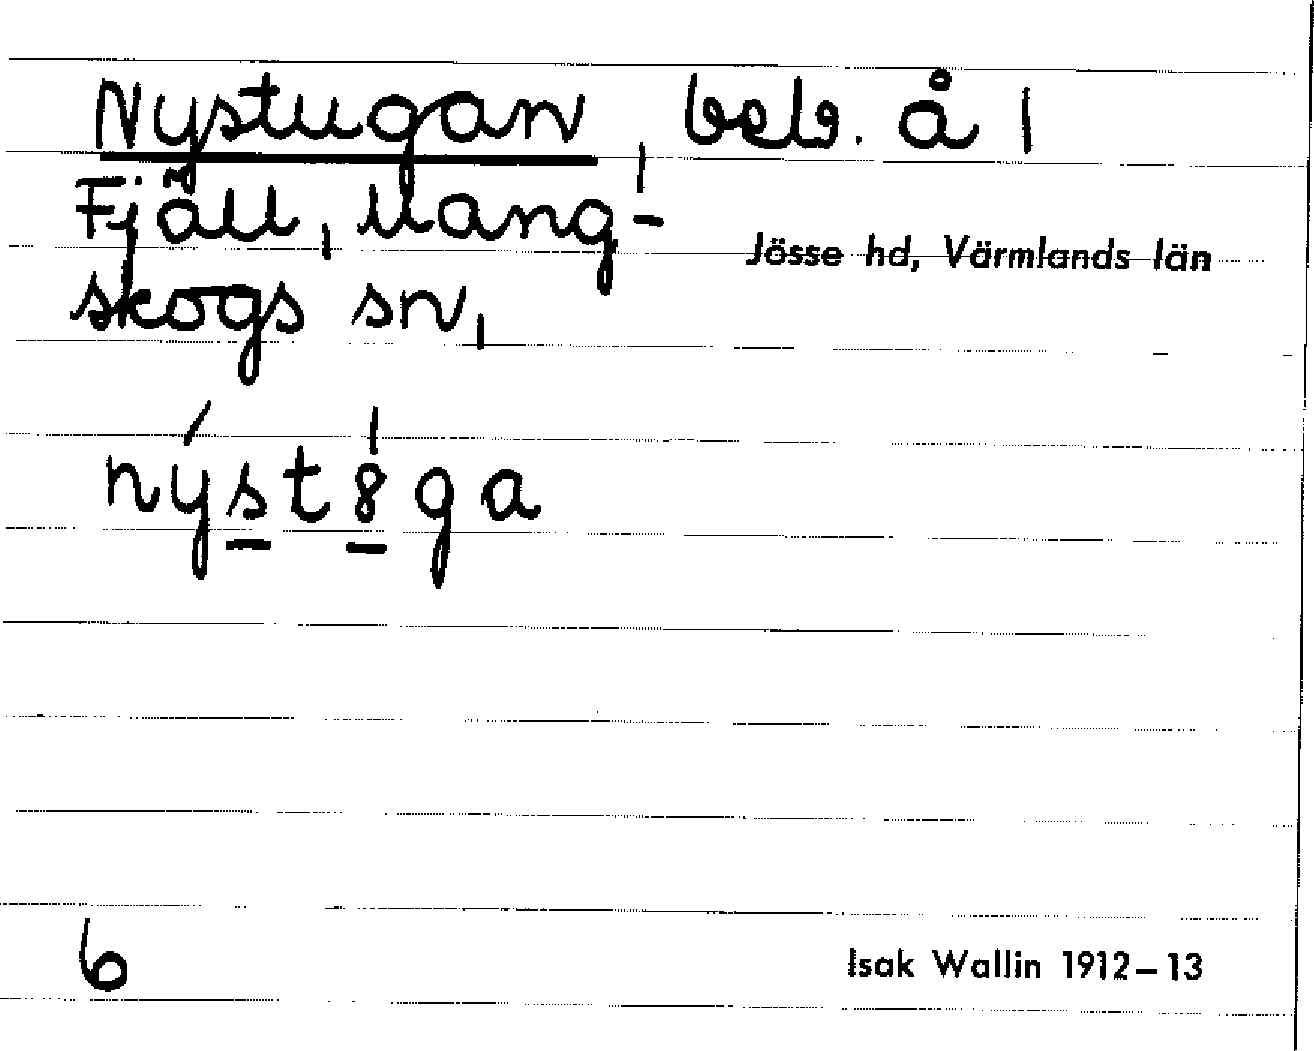 Nystugan, beb. å 1
Fjäll, Mang-
skogs sn,
Jösse hd, Värmlands län
nýst8ga
6
Isak Wallin 1912–13